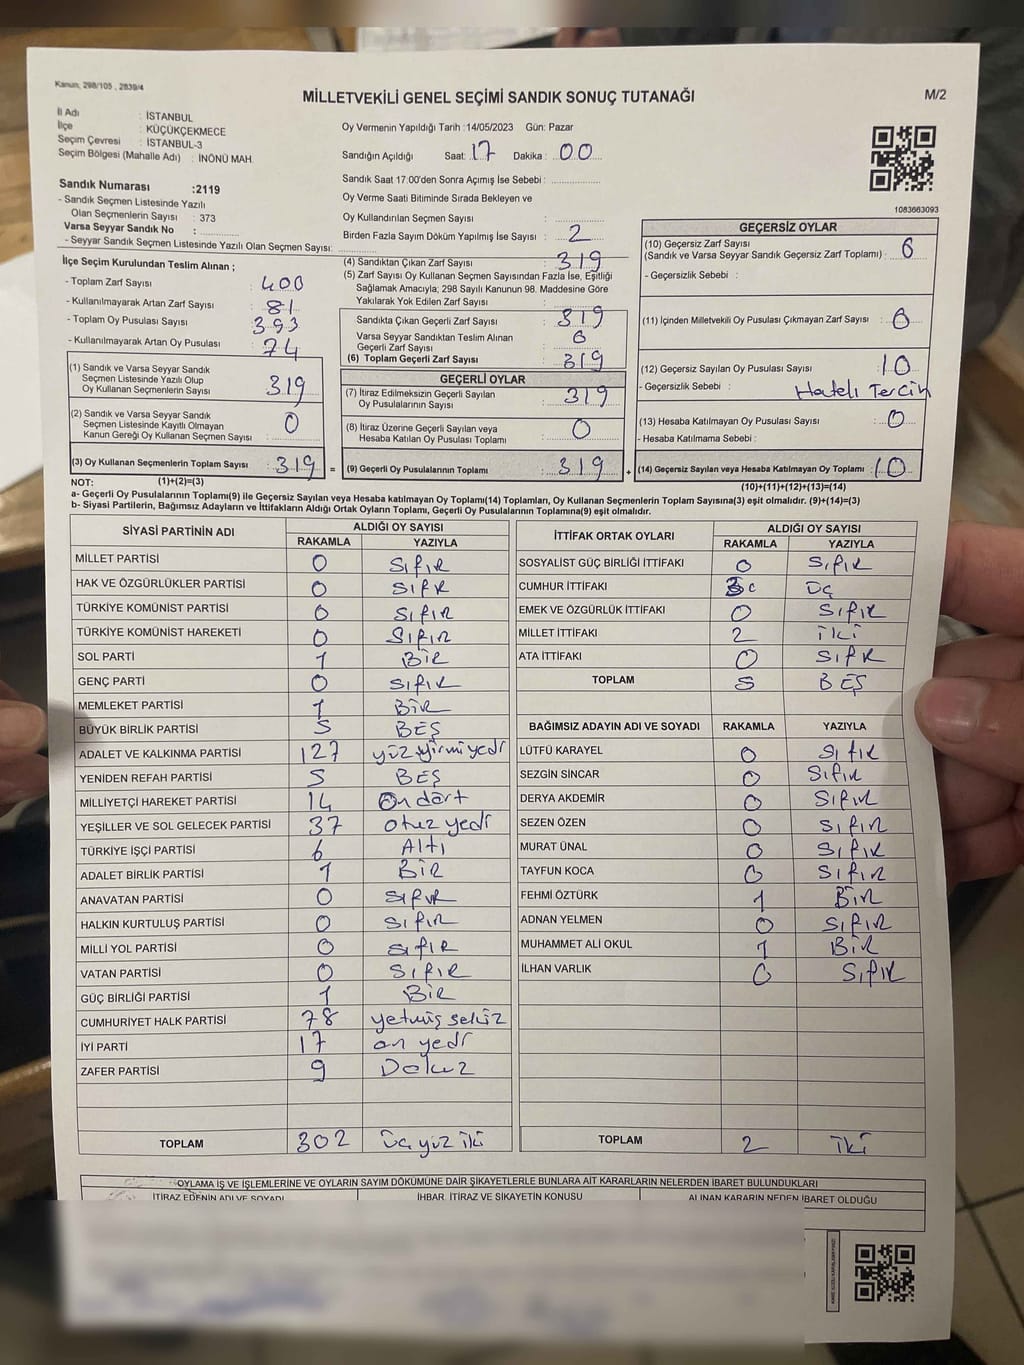 Kanun; 298/105 , 2839/4
MİLLETVEKİLİ GENEL SEÇİMİ SANDIK SONUÇ TUTANAĞI
M/2
İl Adı : İSTANBUL
İlçe : KÜÇÜKÇEKMECE
Seçim Çevresi : İSTANBUL-3
Seçim Bölgesi (Mahalle Adı) : İNÖNÜ MAH.
Oy Vermenin Yapıldığı Tarih :14/05/2023 Gün: Pazar
Sandığın Açıldığı Saat: 17 Dakika : 00
Sandık Saat 17.00'den Sonra Açımış İse Sebebi :
Oy Verme Saati Bitiminde Sırada Bekleyen ve
Oy Kullandırılan Seçmen Sayısı :
Birden Fazla Sayım Döküm Yapılmış İse Sayısı : 2
1083663093
Sandık Numarası :2119
- Sandık Seçmen Listesinde Yazılı
Olan Seçmenlerin Sayısı : 373
Varsa Seyyar Sandık No :
- Seyyar Sandık Seçmen Listesinde Yazılı Olan Seçmen Sayısı:
İlçe Seçim Kurulundan Teslim Alınan ;
- Toplam Zarf Sayısı : 400
- Kullanılmayarak Artan Zarf Sayısı : 81
- Toplam Oy Pusulası Sayısı : 393
- Kullanılmayarak Artan Oy Pusulası : 74
(1) Sandık ve Varsa Seyyar Sandık
Seçmen Listesinde Yazılı Olup
Oy Kullanan Seçmenlerin Sayısı : 319
(2) Sandık ve Varsa Seyyar Sandık
Seçmen Listesinde Kayıtlı Olmayan
Kanun Gereği Oy Kullanan Seçmen Sayısı : 0
(3) Oy Kullanan Seçmenlerin Toplam Sayısı : 319 =
(1)+(2)=(3)
(4) Sandıktan Çıkan Zarf Sayısı : 319
(5) Zarf Sayısı Oy Kullanan Seçmen Sayısından Fazla İse, Eşitliği
Sağlamak Amacıyla; 298 Sayılı Kanunun 98. Maddesine Göre
Yakılarak Yok Edilen Zarf Sayısı :
Sandıkta Çıkan Geçerli Zarf Sayısı : 319
Varsa Seyyar Sandıktan Teslim Alınan
Geçerli Zarf Sayısı : 0
(6) Toplam Geçerli Zarf Sayısı : 319
GEÇERLİ OYLAR
(7) İtiraz Edilmeksizin Geçerli Sayılan
Oy Pusulalarının Sayısı : 319
(8) İtiraz Üzerine Geçerli Sayılan veya
Hesaba Katılan Oy Pusulası Toplamı : 0
(9) Geçerli Oy Pusulalarının Toplamı : 319 +
GEÇERSİZ OYLAR
(10) Geçersiz Zarf Sayısı
(Sandık ve Varsa Seyyar Sandık Geçersiz Zarf Toplamı) : 0
- Geçersizlik Sebebi :
(11) İçinden Milletvekili Oy Pusulası Çıkmayan Zarf Sayısı : 0
(12) Geçersiz Sayılan Oy Pusulası Sayısı : 10
- Geçersizlik Sebebi : Hatalı Tercih
(13) Hesaba Katılmayan Oy Pusulası Sayısı : 0
- Hesaba Katılmama Sebebi :
(14) Geçersiz Sayılan veya Hesaba Katılmayan Oy Toplamı : 10
(10)+(11)+(12)+(13)=(14)
NOT:
a- Geçerli Oy Pusulalarının Toplamı(9) ile Geçersiz Sayılan veya Hesaba katılmayan Oy Toplamı(14) Toplamları, Oy Kullanan Seçmenlerin Toplam Sayısına(3) eşit olmalıdır. (9)+(14)=(3)
b- Siyasi Partilerin, Bağımsız Adayların ve İttifakların Aldığı Ortak Oyların Toplamı, Geçerli Oy Pusulalarının Toplamına(9) eşit olmalıdır.
SİYASİ PARTİNİN ADI ALDIĞI OY SAYISI
RAKAMLA YAZIYLA
MİLLET PARTİSİ 0 Sıfır
HAK VE ÖZGÜRLÜKLER PARTİSİ 0 Sıfır
TÜRKİYE KOMÜNİST PARTİSİ 0 Sıfır
TÜRKİYE KOMÜNİST HAREKETİ 0 Sıfır
SOL PARTİ 1 Bir
GENÇ PARTİ 0 Sıfır
MEMLEKET PARTİSİ 1 Bir
BÜYÜK BİRLİK PARTİSİ 5 BEŞ
ADALET VE KALKINMA PARTİSİ 127 yüz yirmi yedi
YENİDEN REFAH PARTİSİ 5 BEŞ
MİLLİYETÇİ HAREKET PARTİSİ 14 On dört
YEŞİLLER VE SOL GELECEK PARTİSİ 37 otuz yedi
TÜRKİYE İŞÇİ PARTİSİ 6 Altı
ADALET BİRLİK PARTİSİ 1 Bir
ANAVATAN PARTİSİ 0 Sıfır
HALKIN KURTULUŞ PARTİSİ 0 Sıfır
MİLLİ YOL PARTİSİ 0 Sıfır
VATAN PARTİSİ 0 Sıfır
GÜÇ BİRLİĞİ PARTİSİ 1 Bir
CUMHURİYET HALK PARTİSİ 78 yetmiş sekiz
İYİ PARTİ 17 on yedi
ZAFER PARTİSİ 9 Dokuz
TOPLAM 302 üç yüz iki
İTTİFAK ORTAK OYLARI ALDIĞI OY SAYISI
RAKAMLA YAZIYLA
SOSYALİST GÜÇ BİRLİĞİ İTTİFAKI 0 Sıfır
CUMHUR İTTİFAKI 3 üç
EMEK VE ÖZGÜRLÜK İTTİFAKI 0 Sıfır
MİLLET İTTİFAKI 2 iki
ATA İTTİFAKI 0 Sıfır
TOPLAM 5 BEŞ
BAĞIMSIZ ADAYIN ADI VE SOYADI RAKAMLA YAZIYLA
LÜTFÜ KARAYEL 0 Sıfır
SEZGİN SİNCAR 0 Sıfır
DERYA AKDEMİR 0 Sıfır
SEZEN ÖZEN 0 Sıfır
MURAT ÜNAL 0 Sıfır
TAYFUN KOCA 0 Sıfır
FEHMİ ÖZTÜRK 1 Bir
ADNAN YELMEN 0 Sıfır
MUHAMMET ALİ OKUL 1 Bir
İLHAN VARLIK 0 Sıfır
TOPLAM 2 iki
OYLAMA İŞ VE İŞLEMLERİNE VE OYLARIN SAYIM DÖKÜMÜNE DAİR ŞİKAYETLERLE BUNLARA AİT KARARLARIN NELERDEN İBARET BULUNDUKLARI
İTİRAZ EDENİN ADI VE SOYADI İHBAR, İTİRAZ VE ŞİKAYETİN KONUSU ALINAN KARARIN NEDEN İBARET OLDUĞU